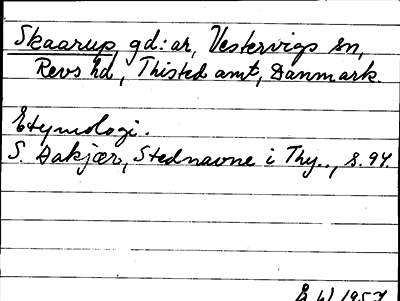 Skaarup, gd:ar, Vestervigs sn,
Refs hd, Thisted amt, Danmark.
Etymologi.
S. Aakjær, Stednavne i Thy.., s.94.
1957